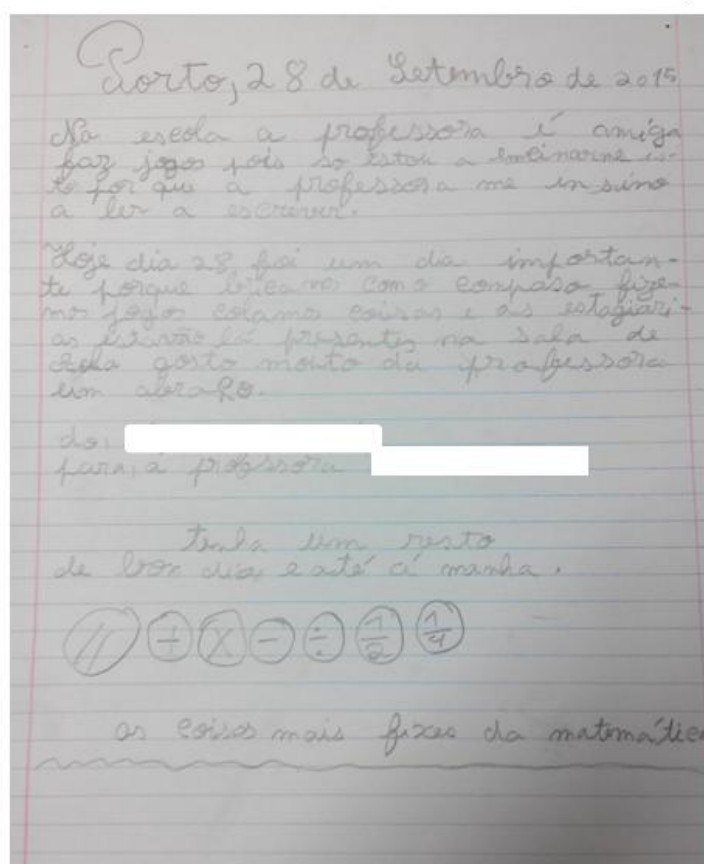 Porto, 28 de Setembro de 2015
Na escola a professora é amiga
faz jogos pois so estou a emcinarme is-
to por que a professora me insino
a ler a escrever.
Hoje dia 28 foi um dia importan-
te porque bricamos como compaso fize-
mos jogos colamos coisas e as estagiari-
as estavão lá presentes na sala de
aola gosto moito da professora
um abraço.
do:
para: a professora
tenha um resto
de bom dia e até á manha.
// + × − ÷ 1/2 1/4
as coisas mais fixes da matemática